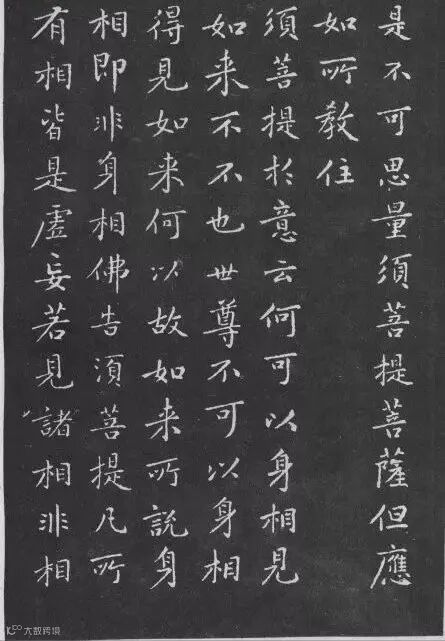 是不可思量須菩提菩薩但應
如所教住
須菩提於意云何可以身相見
如来不不也世尊不可以身相
得見如来何以故如来所説身
相即非身相佛告須菩提凡所
有相皆是虛妄若見諸相非相
大数跨境